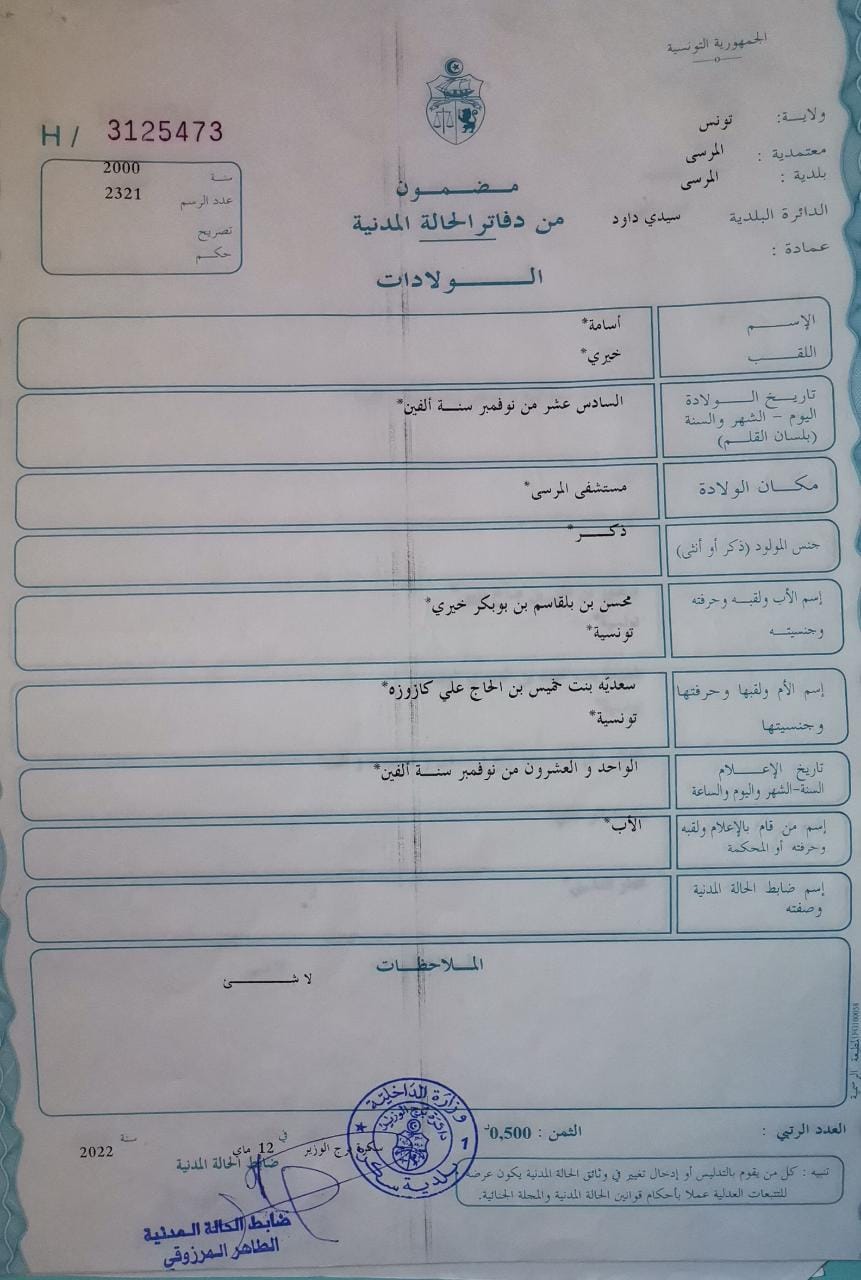 الجمهورية التونسية
ولايـة: تونس
معتمدية : المرسى
بلدية : المرسى
الدائرة البلدية سيدي داود
عمادة :
H / 3125473
سنة 2000
عدد الرسم 2321
تصريح
حكم
مضمون
من دفاتر الحالة المدنية
الولادات
الإسم أسامة*
اللقب خيري*
تاريخ الولادة
اليوم - الشهر والسنة
(بلسان القلم)
السادس عشر من نوفمبر سنة ألفين*
مكان الولادة مستشفى المرسى*
جنس المولود (ذكر أو أنثى) ذكر*
إسم الأب ولقبه وحرفته
وجنسيته
محسن بن بلقاسم بن بوبكر خيري*
تونسية*
إسم الأم ولقبها وحرفتها
وجنسيتها
سعديّه بنت خميس بن الحاج علي كازوزه*
تونسية*
تاريخ الإعلام
السنة-الشهر واليوم والساعة
الواحد و العشرون من نوفمبر سنة ألفين*
إسم من قام بالإعلام ولقبه
وحرفته أو المحكمة
الأب*
إسم ضابط الحالة المدنية
وصفته
الملاحظات
لا شئ
العدد الرتبي :
الثمن : 0,500د
سكرة برج الوزير في 12 ماي سنة 2022
ضابط الحالة المدنية
تنبيه : كل من يقوم بالتدليس أو إدخال تغيير في وثائق الحالة المدنية يكون عرضة
للتتبعات العدلية عملا بأحكام قوانين الحالة المدنية والمجلة الجنائية.
وزارة الداخلية
دائرة برج الوزير
بلدية سكرة
ضابط الحالة المدنية
الطاهر المرزوقي